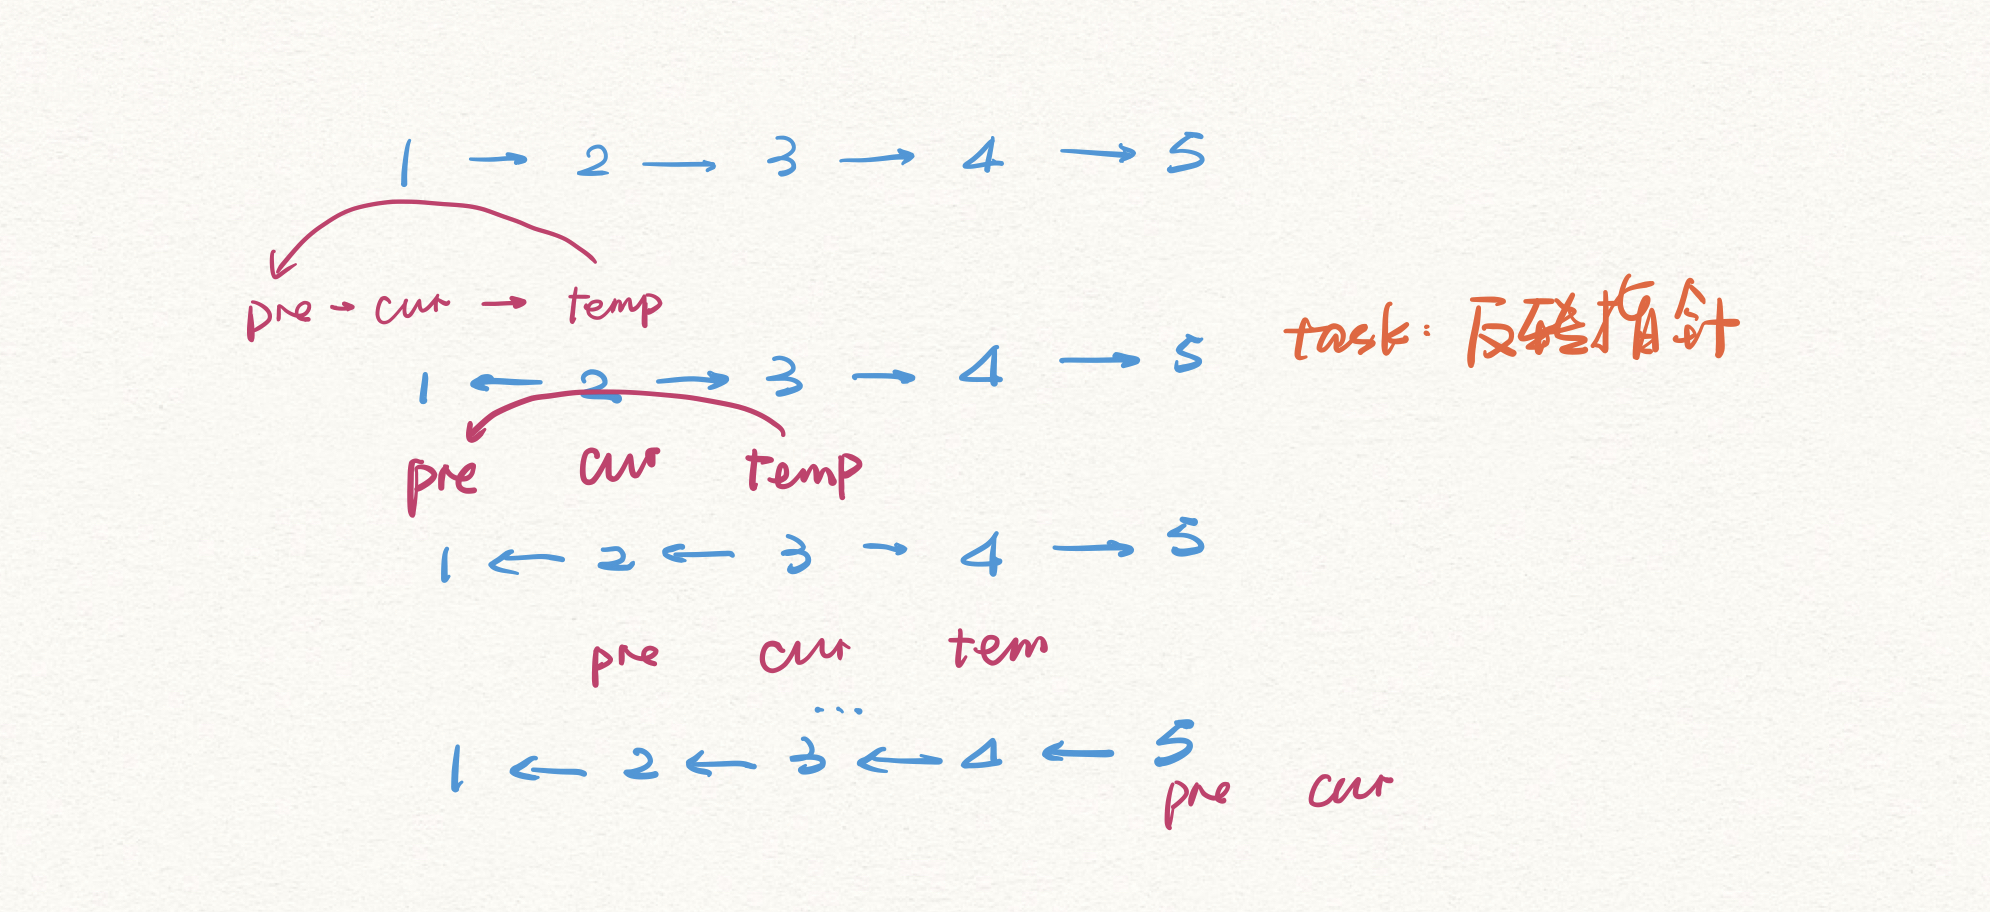 1 → 2 → 3 → 4 → 5
pre → cur → temp
task: 反转指针
1 ← 2 → 3 → 4 → 5
pre cur temp
1 ← 2 ← 3 → 4 → 5
pre cur tem
...
1 ← 2 ← 3 ← 4 ← 5
pre cur